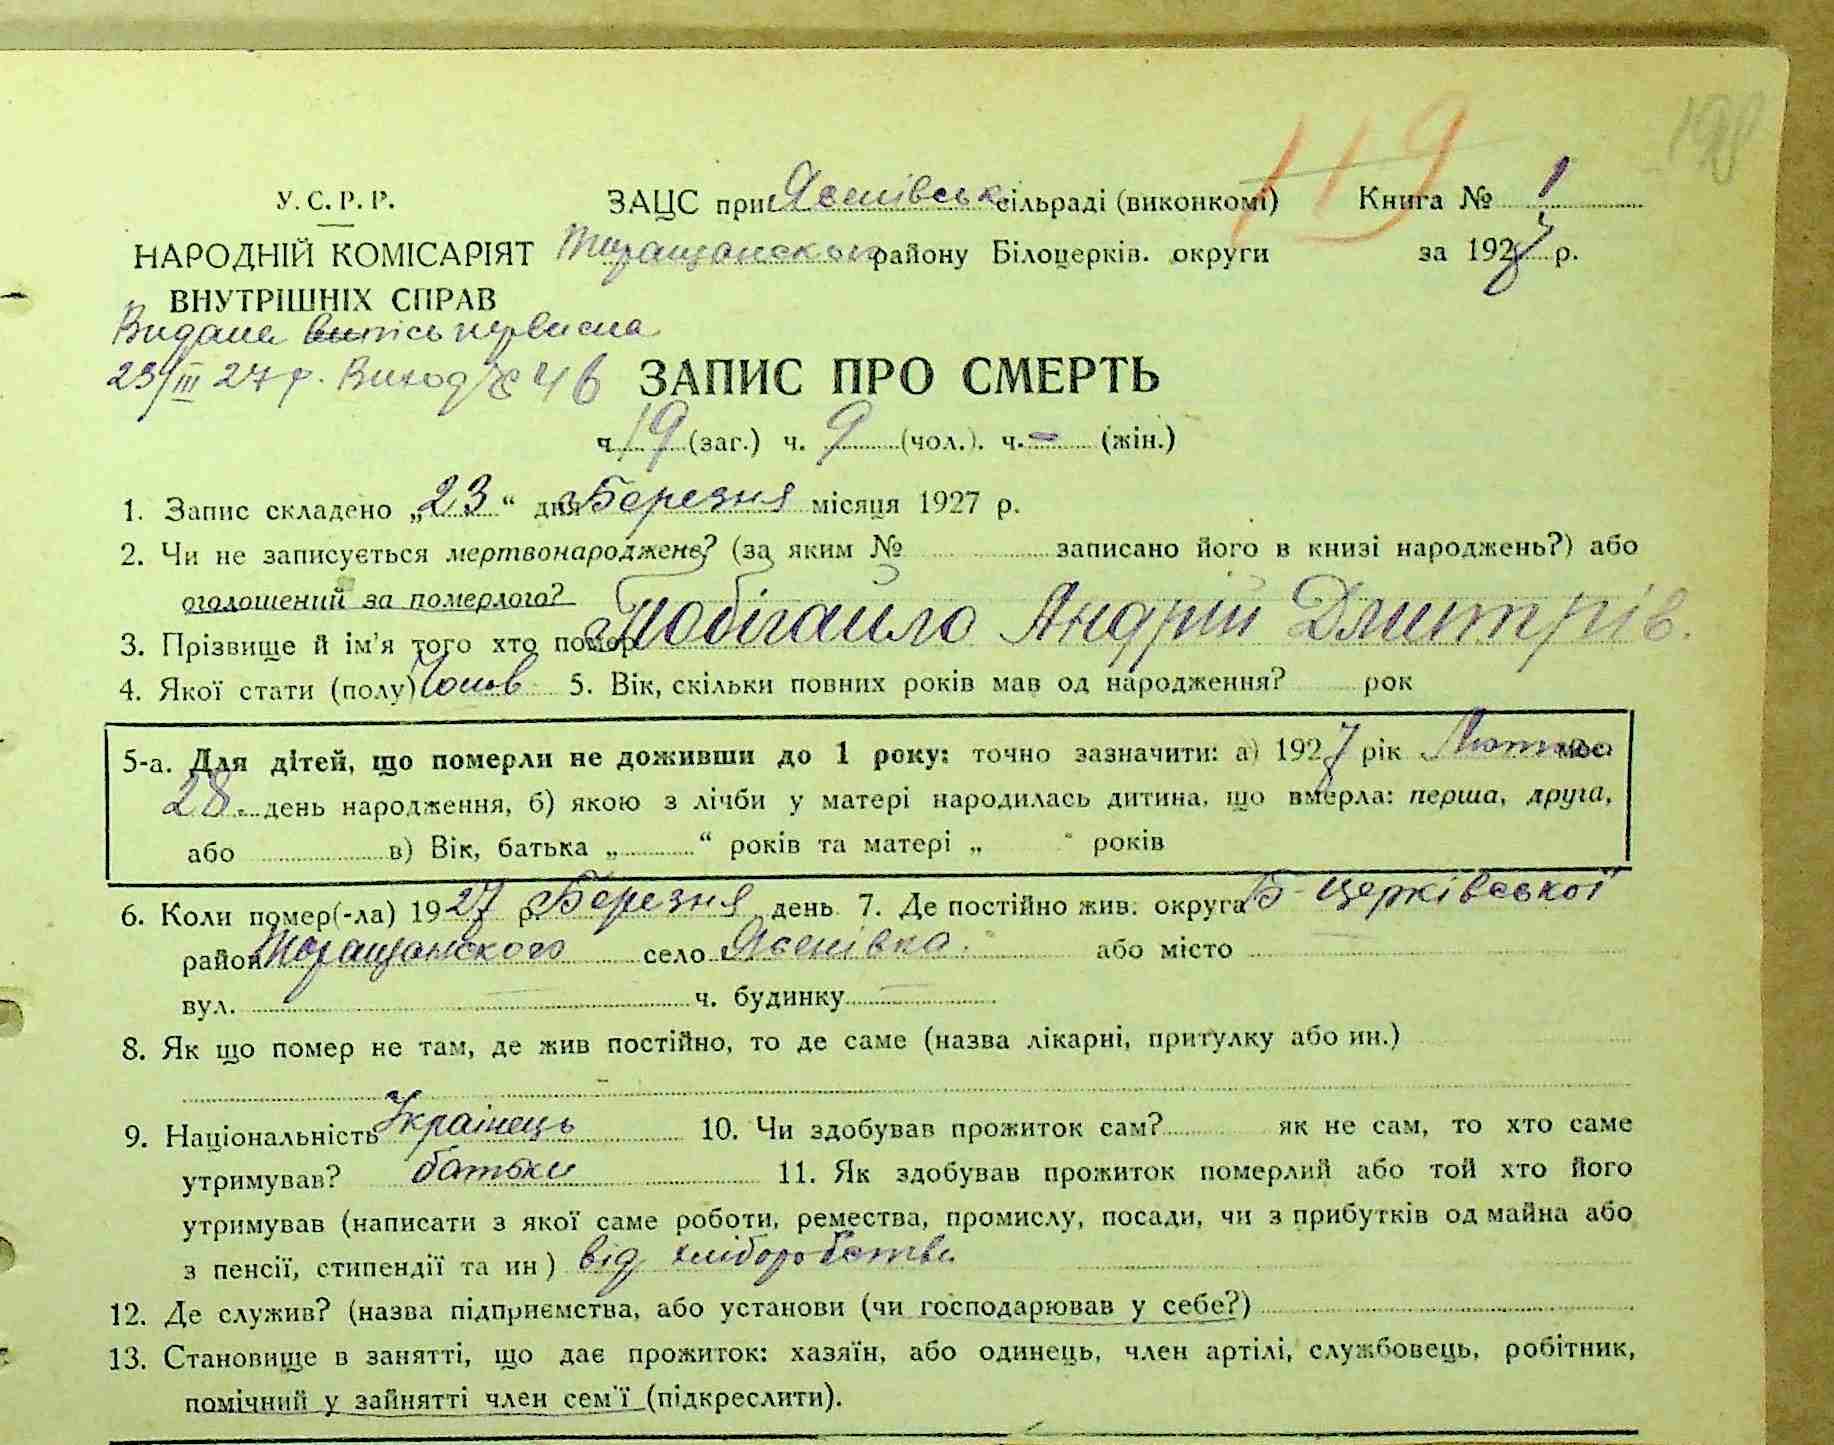 119
198
У. С. Р. Р.
НАРОДНІЙ КОМІСАРІЯТ
ВНУТРІШНІХ СПРАВ
ЗАЦС при Ясенівськ сільраді (виконкомі)
Таращанськ району Білоцерків. округи
Книга № 1
за 1927 р.
Видана випись первисна
23/III 27 р. Виход № 46
ЗАПИС ПРО СМЕРТЬ
ч. 19 (заг.) ч. 9 (чол.). ч. - (жін.)
1. Запис складено „23“ дня Березня місяця 1927 р.
2. Чи не записується мертвонароджене? (за яким № записано його в книзі народжень?) або
оголошений за померлого?
3. Прізвище й ім'я того хто помер Побігайло Андрій Дмитрів.
4. Якої стати (полу) Чолов 5. Вік, скільки повних років мав од народження? рок
5-а. Для дітей, що померли не доживши до 1 року: точно зазначити: а) 1927 рік Лютого міс.
28. день народження, б) якою з лічби у матері народилась дитина, що вмерла: перша, друга,
або в) Вік, батька „ “ років та матері „ “ років
6. Коли помер(-ла) 1927 р. Березня день 7. Де постійно жив: округа Б-Церківської
район Таращанського село Ясенівка або місто
вул. ч. будинку
8. Як що помер не там, де жив постійно, то де саме (назва лікарні, притулку або ин.)
9. Національність Українець 10. Чи здобував прожиток сам? як не сам, то хто саме
утримував? батьки 11. Як здобував прожиток померлий або той хто його
утримував (написати з якої саме роботи, ремества, промислу, посади, чи з прибутків од майна або
з пенсії, стипендії та ин) від хліборобства
12. Де служив? (назва підприємства, або установи (чи господарював у себе?)
13. Становище в занятті, що дає прожиток: хазяїн, або одинець, член артілі, службовець, робітник,
помічний у зайнятті член сем'ї (підкреслити).